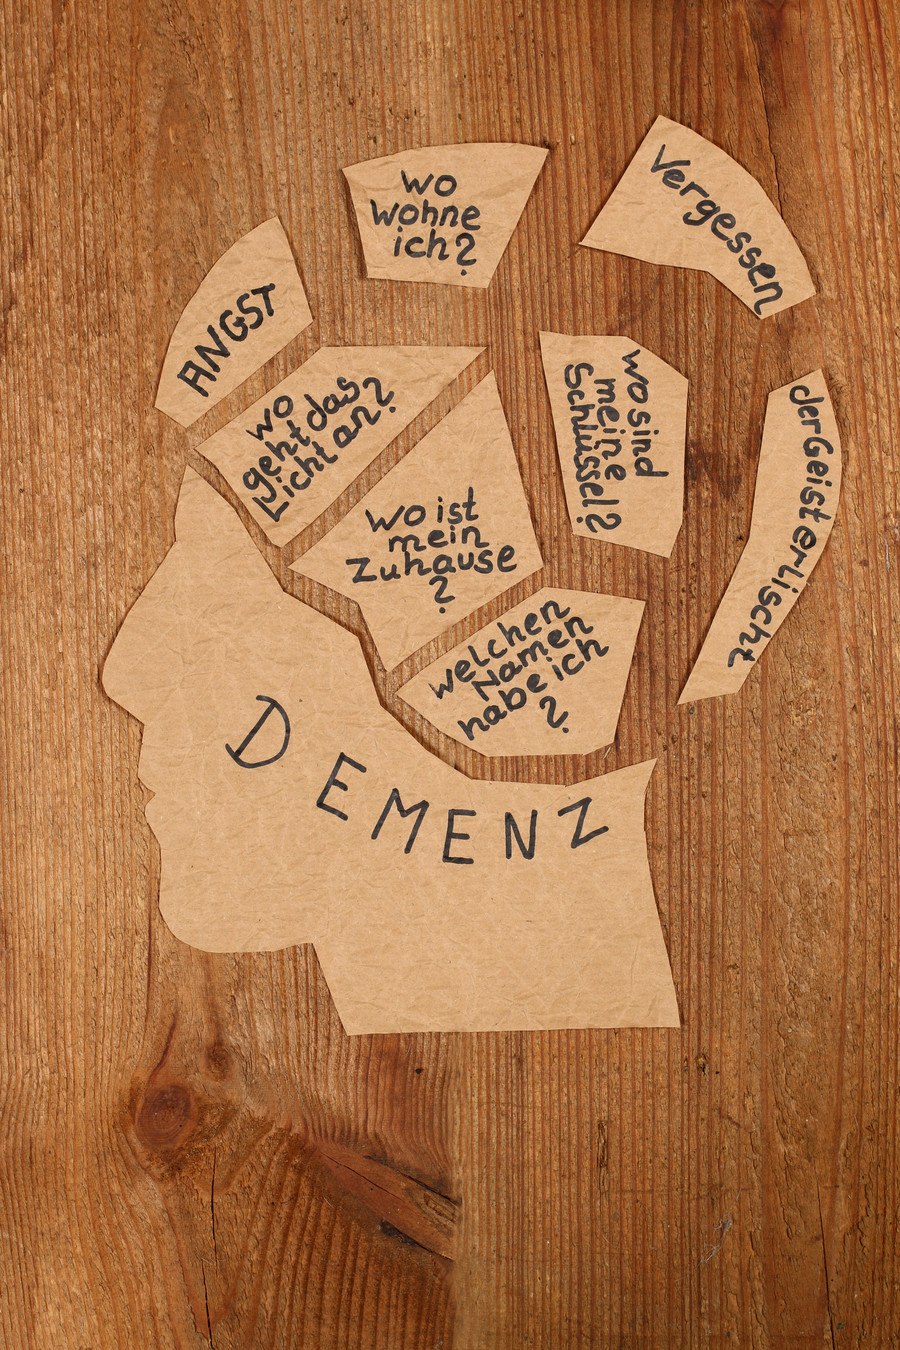 wo
wohne
ich?
Vergessen
ANGST
wo
geht das
Licht an?
wo sind
meine
Schlüssel?
der Geist erlischt
wo ist
mein
Zuhause
?
welchen
Namen
habe ich
?
DEMENZ